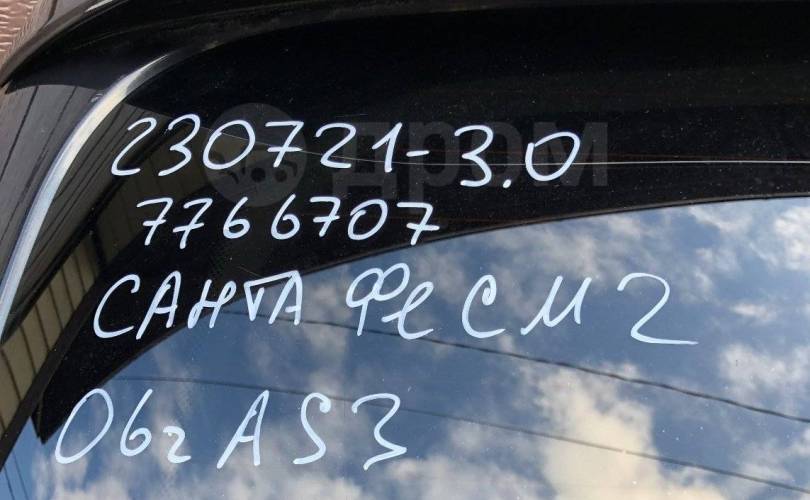 230721-3.0
дром
7766707
САНТА ФЕ СМ 2
06г AS3